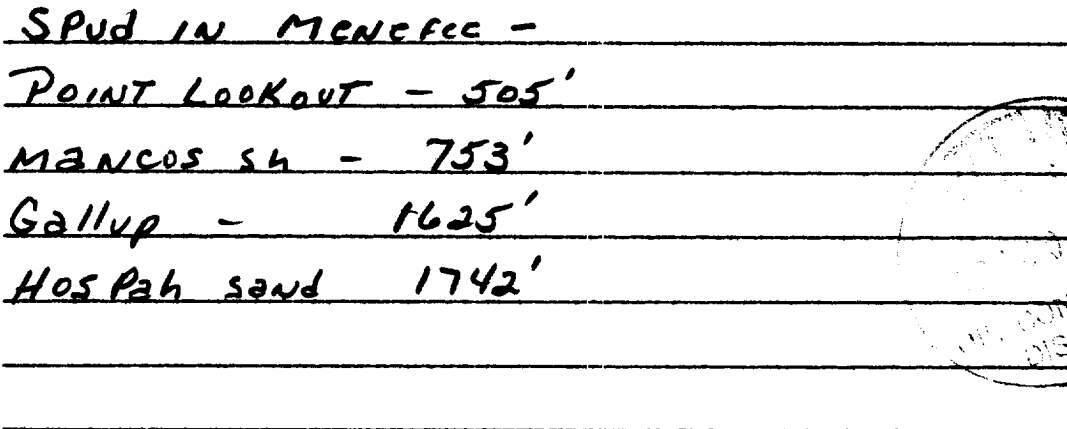 Spud in Menefee -
Point Lookout - 505'
Mancos sh - 753'
Gallup - 1625'
Hospah sand 1742'